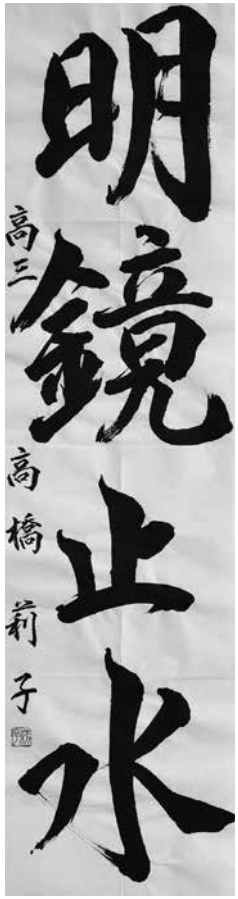 明鏡止水
高三 高橋莉子